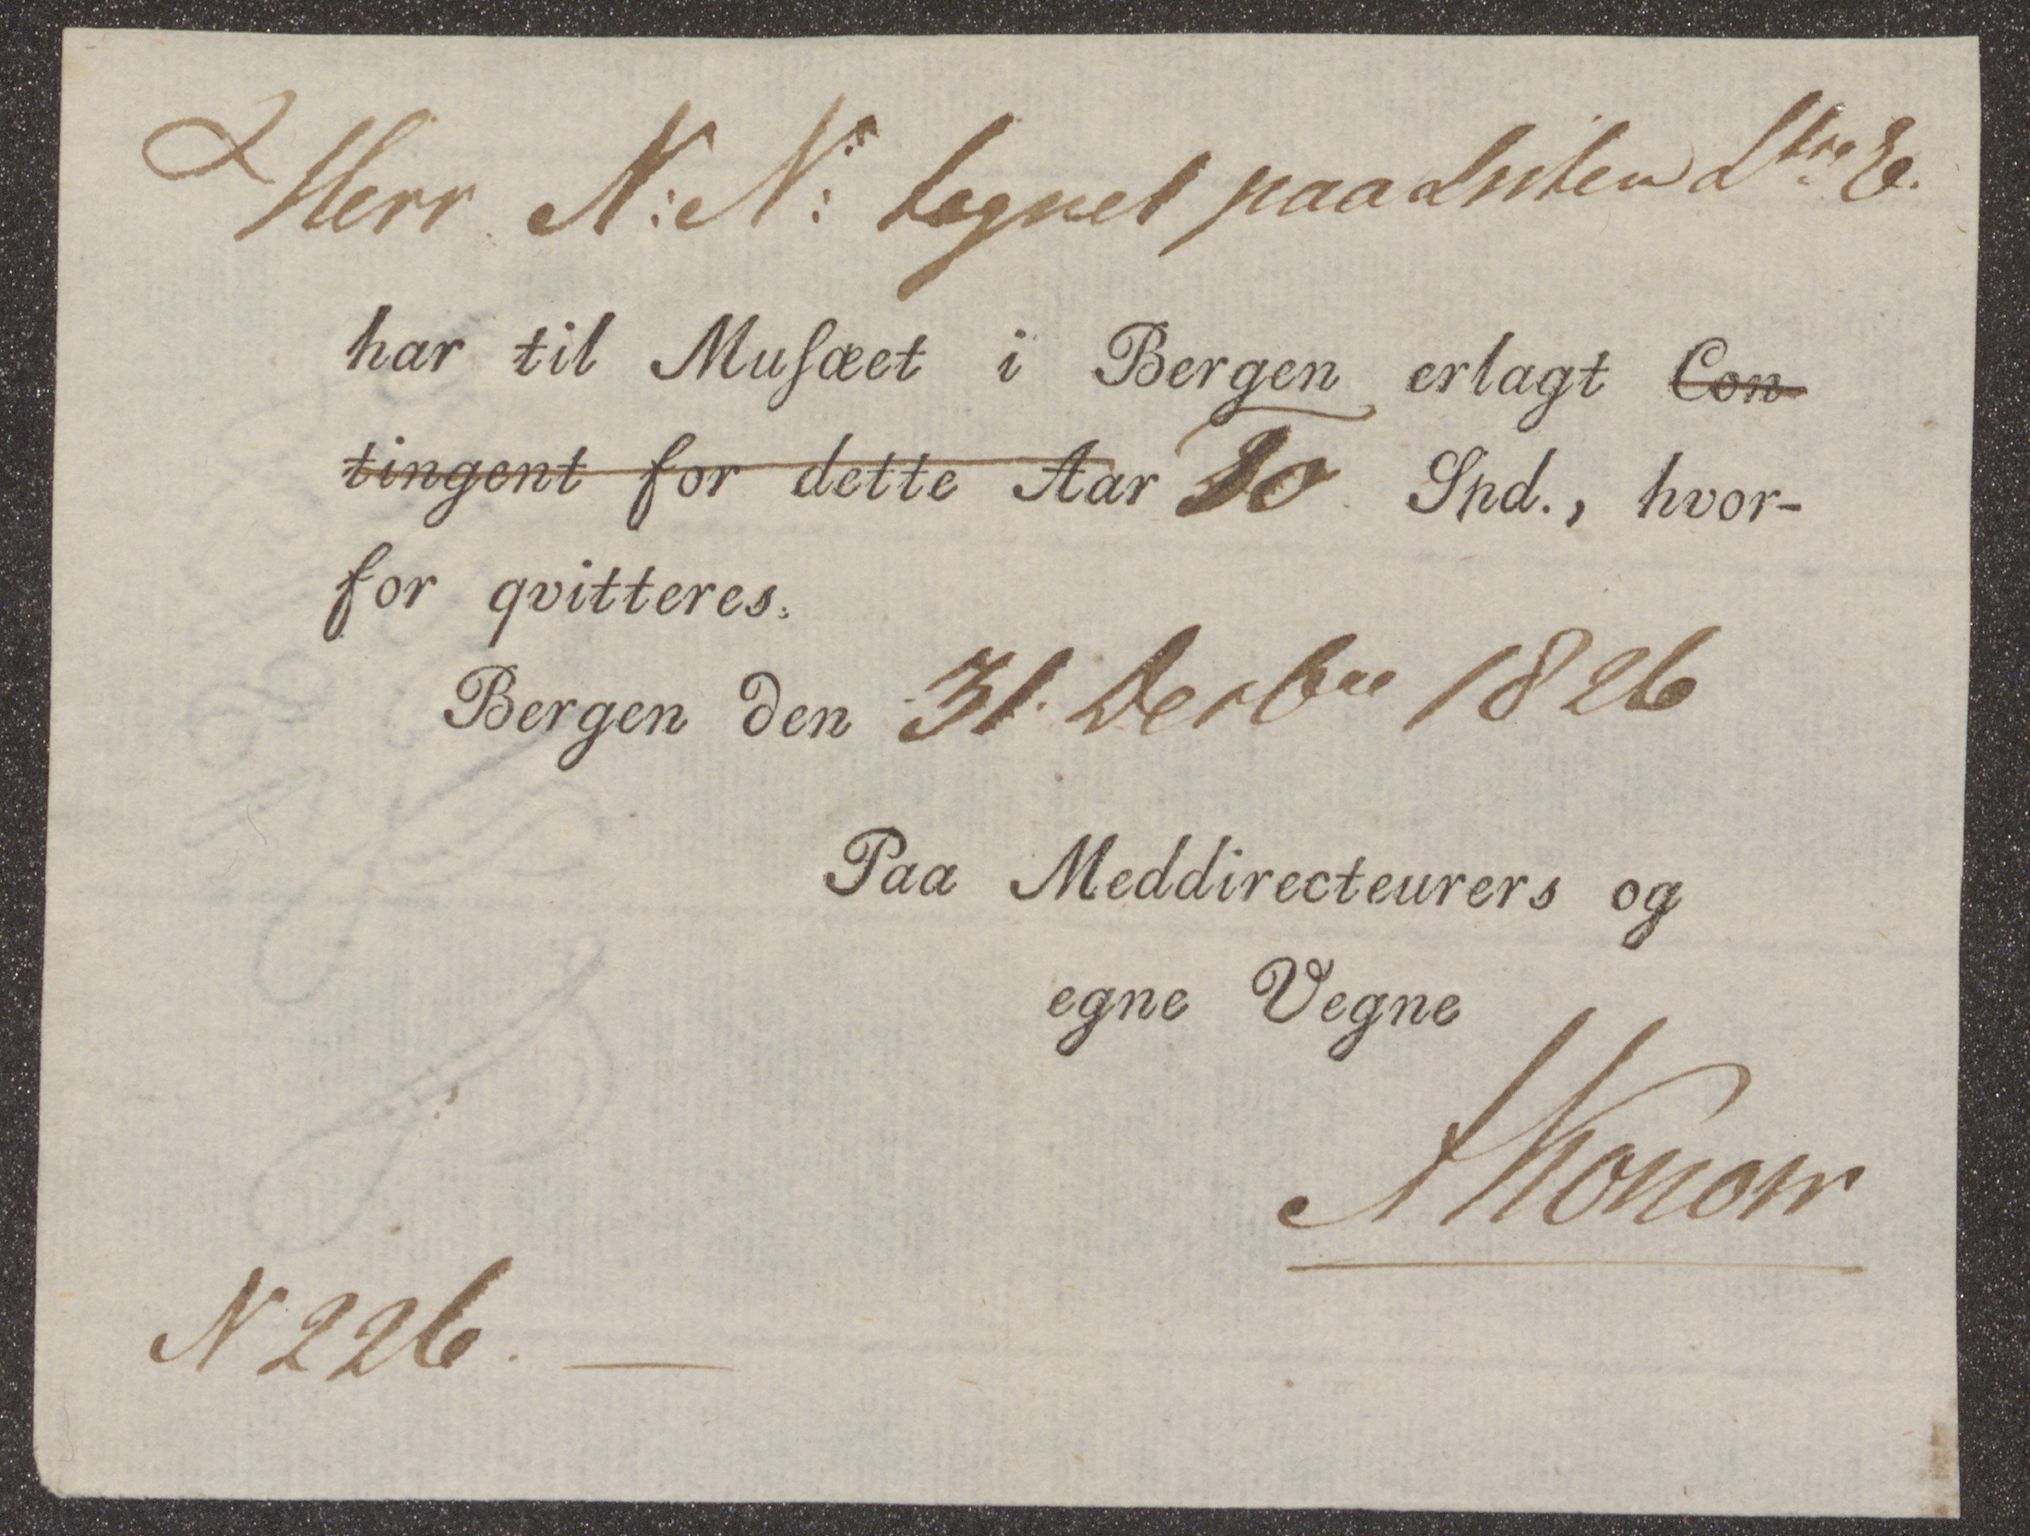 Herr N: N: tegnet paa Listen Ltra E.
har til Muſæet i Bergen erlagt Con
tingent for dette Aar To Spd., hvor-
for qvitteres.
Bergen den 31. Decbr 1826
Paa Meddirecteurers og
egne Vegne
A Konow
N 226.